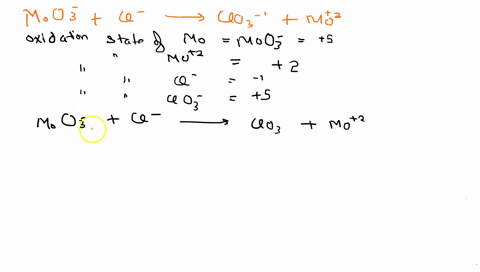 MoO3^- + Cl^- → ClO3^-1 + Mo^+2
oxidation state of Mo = MoO3^- = +5
" " Mo^+2 = +2
" " Cl^- = -1
" " ClO3^- = +5
MoO3^- + Cl^- → ClO3 + Mo^+2